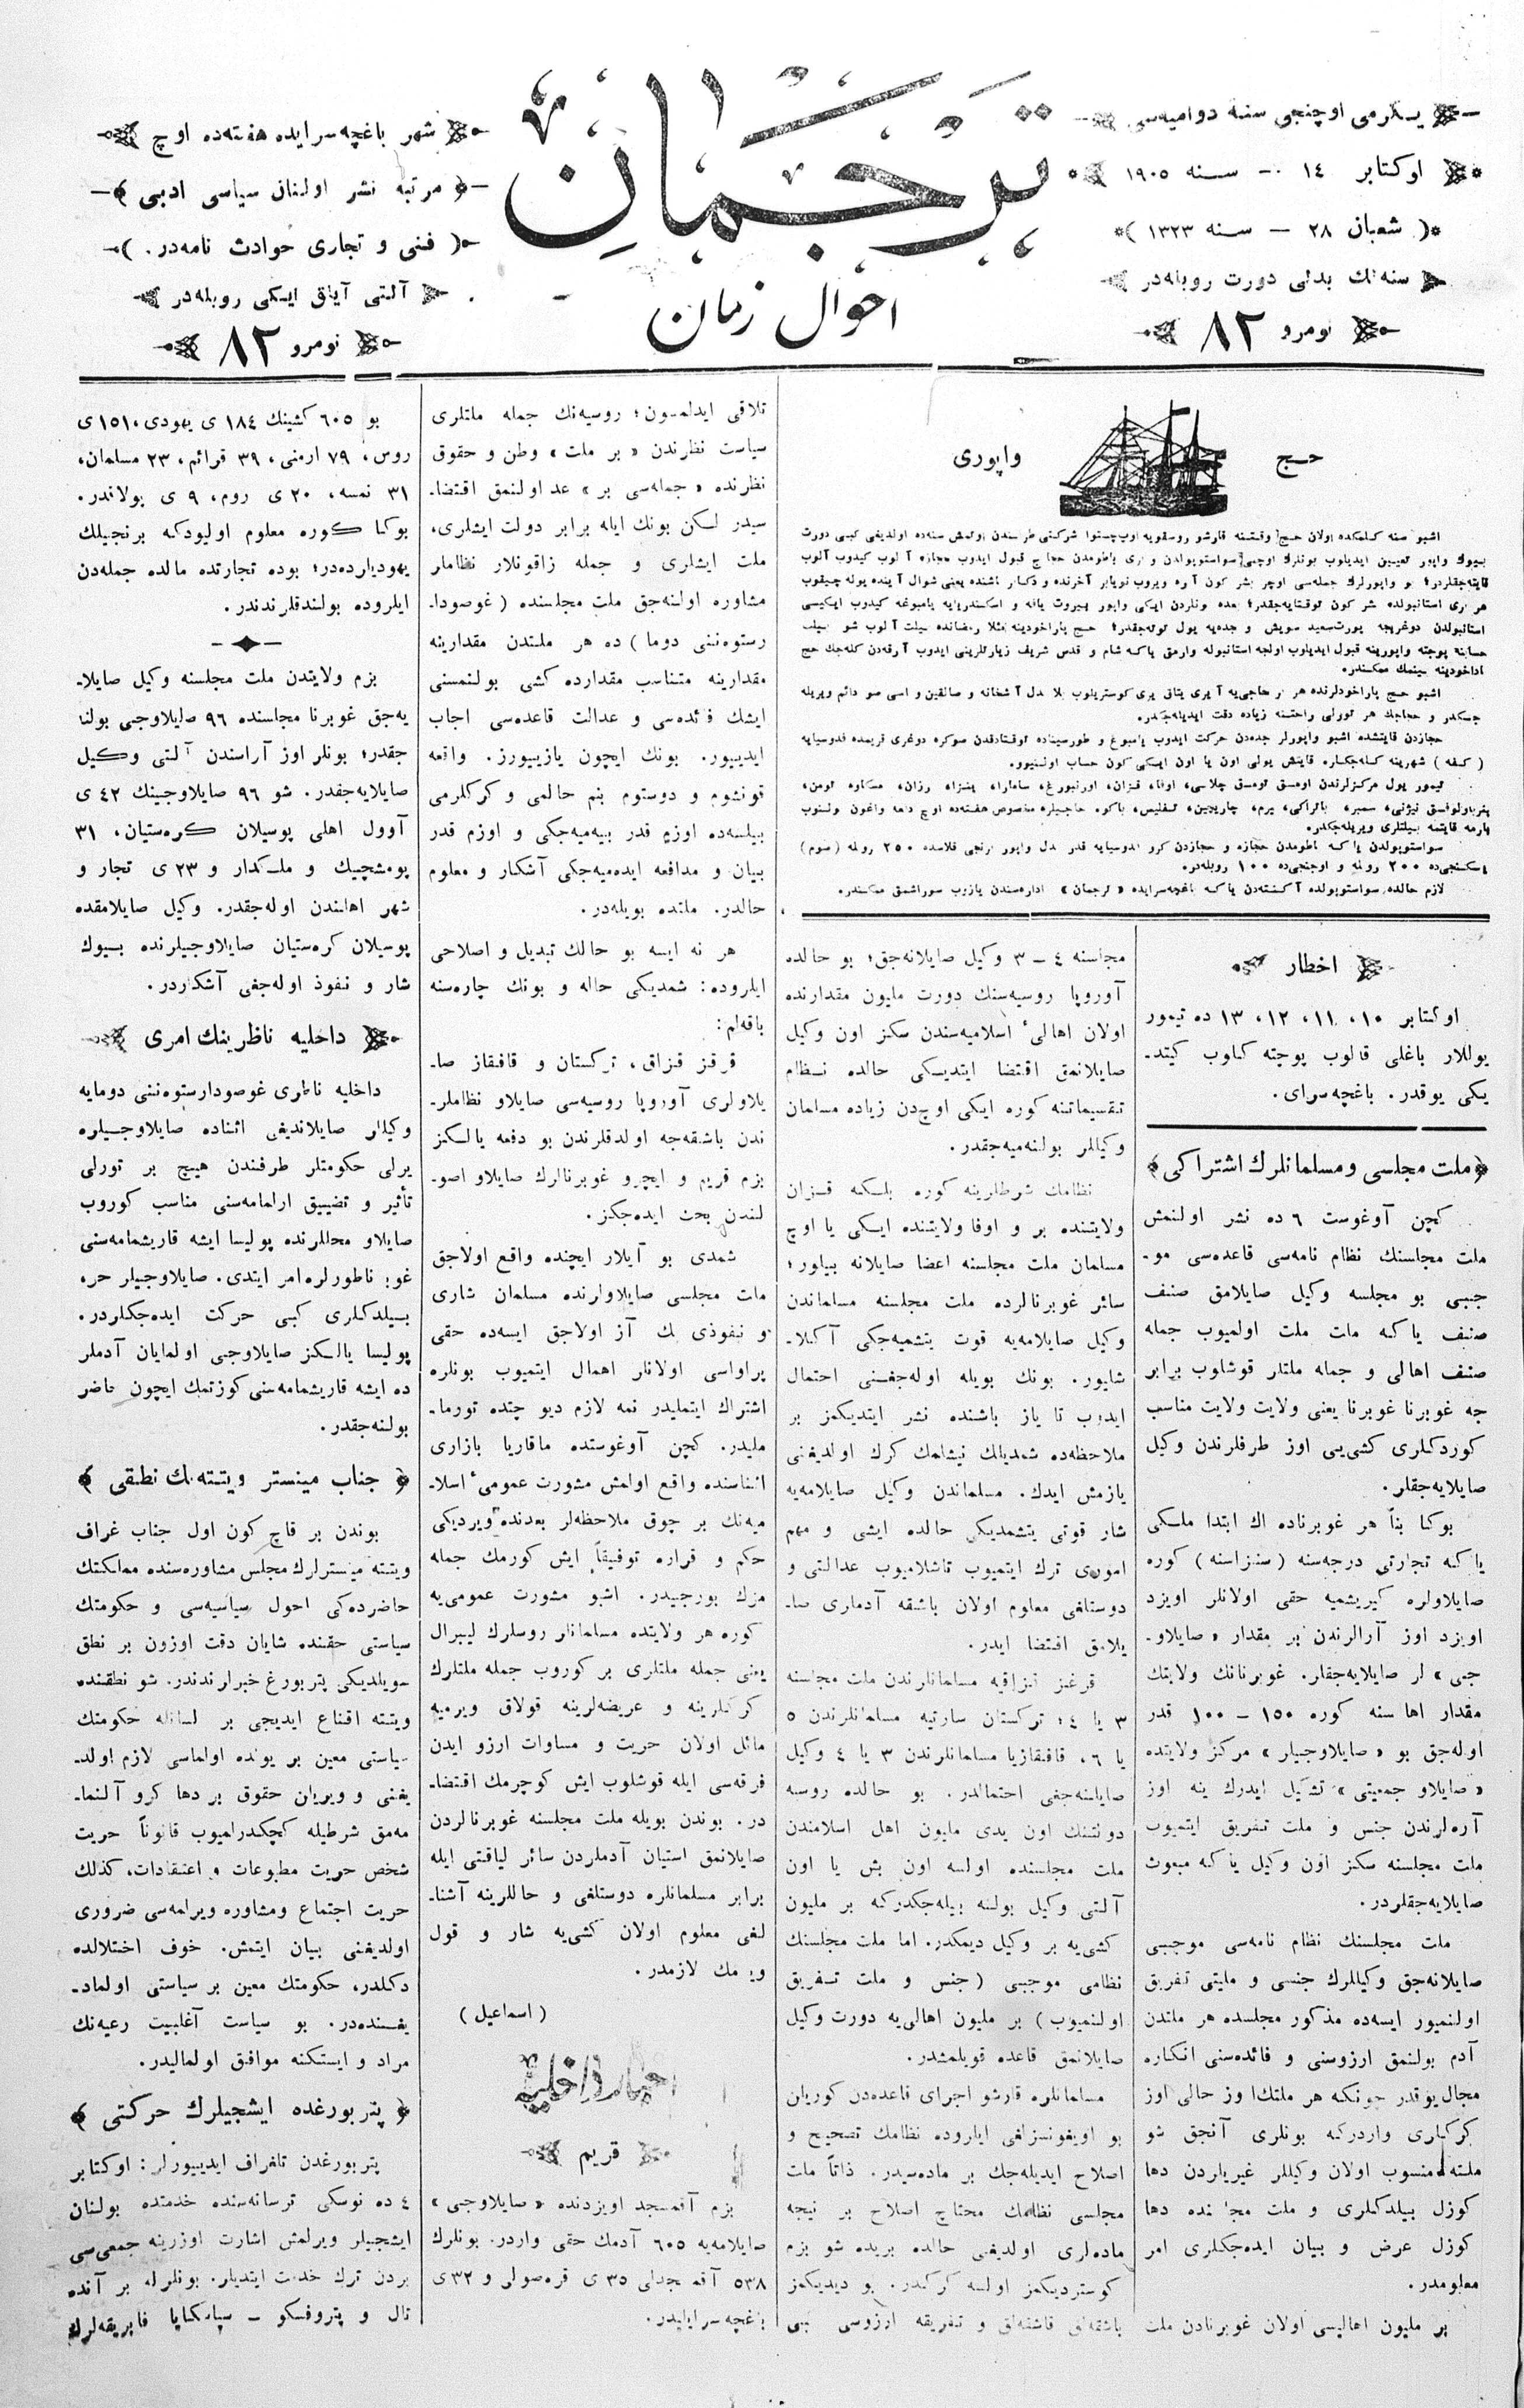 يگرمی اوچنجی سنه دوامیه‌سی
اوکتابر ١٤ — سنه ١٩٠٥
( شعبان ٢٨ — سنه ١٣٢٣ )
سنه‌لك بدلی دورت روبله‌در
نومرو ٨٢
ترجمان
احوال زمان
شهر باغچه‌سرایده هفته‌ده اوچ
مرتبه نشر اولنان سیاسی ادبی
( فنی و تجاری حوادث نامه‌در. )
آلتی آیلق ایكی روبله‌در
نومرو ٨٢
حج واپوری
اشبو سنه كلمكده اولان حج وقتنه قارشو روسقویه اوبچستوا شركتی طرفندن اولمش سنه‌ده اولدیغی كبی دورت
اشبو حج پاراخودلرنده هر بر حاجی‌یه آیری یتاق یری كوستریلوب
جكدر و حجاجك هر تورلی راحتنه زیاده دقت ایدیله‌جكدر.
حجازدن قایتشده اشبو واپورلر جده‌دن حركت ایدوب یامبوغ و طورسیناده توقتادقدن سوكره دوغری قریمده فدوسیایه
( كفه ) شهرینه كله‌جكلر. قایتش یولی اون یا اون ایكی كون حساب اولنیور.
لازم حالده سواستوپولده آگنتدن یاكه باغچه‌سرایده « ترجمان » اداره‌سندن یازوب سوراشمق ممكندر.
اخطار
اوكتابر ١٠، ١١، ١٢، ١٣ ده تیمور
یوللار باغلی قالوب پوچته كلوب كیتد-
یكی یوقدر. باغچه‌سرای.
ملت مجلسی ومسلمانلرك اشتراكی
كچن آوغوست ٦ ده نشر اولنمش
ملت مجلسنك نظام نامه‌سی قاعده‌سی مو-
جبی بو مجلسه وكیل صایلامق صنف
صنف یاكه ملت ملت اولمیوب جمله
صنف اهالی و جمله ملتلر قوشلوب برابر
جه غوبرنا غوبرنا یعنی ولایت ولایت مناسب
كوردكلری كشی‌یی اوز طرفلرندن وكیل
صایلایه‌جقلر.
بوكا بناً هر غوبرناده اك ابتدا ملكی
یاكه تجارتی درجه‌سنه (سنزاسنه) كوره
صایلاولره كیریشمیه حقی اولانلر اویزد
اویزد اوز آرالرندن بر مقدار « صایلاو-
جی » لر صایلایه‌جقلر. غوبرنانك ولایتك
مقدار اهالیسنه كوره ١٥٠ – ١٠٠ قدر
اوله‌جق بو « صایلاوجیلر » مركز ولایتده
« صایلاو جمعیتی » تشكیل ایدرك ینه اوز
آره‌لرندن جنس و ملت تفریق ایتمیوب
ملت مجلسنه سكز اون وكیل یاكه مبعوث
صایلایه‌جقلردر.
ملت مجلسنك نظام نامه‌سی موجبی
صایلانه‌جق وكیللرك جنسی و ملیتی تفریق
اولنمیور ایسه‌ده مذكور مجلسده هر ملتدن
آدم بولنمق ارزوسنی و فائده‌سنی انكاره
مجال یوقدر چونكه هر ملتك اوز حالی اوز
كركلری واردركه بونلری آنجق شو
ملته منسوب اولان وكیللر غیریلردن دها
كوزل بیلدكلری و ملت مجلسنده دها
كوزل عرض و بیان ایده‌جكلری امر
معلومدر.
بر ملیون اهالیسی اولان غوبرنادن ملت
مجلسنه ٤ – ٣ وكیل صایلانه‌جق؛ بو حالده
آوروپا روسیه‌سنك دورت ملیون مقدارنده
اولان اهالیٔ اسلامیه‌سندن سكز اون وكیل
صایلانمق اقتضا ایتدیكی حالده نظام
تقسیماتنه كوره ایكی اوچ‌دن زیاده مسلمان
وكیللر بولنه‌میه‌جقدر.
نظامك شرطلرینه كوره بلكه قزان
ولایتنده بر و اوفا ولایتنده ایكی یا اوچ
مسلمان ملت مجلسنه اعضا صایلانه بیلور؛
سائر غوبرنالرده ملت مجلسنه مسلماندن
وكیل صایلامه‌یه قوت یتشمیه‌جكی آكلا-
شلیور. بونك بویله اوله‌جغنی احتمال
ایدوب تا یاز باشنده نشر ایتدیكمز بر
ملاحظه‌ده شمدیلك نیشلمك كرك اولدیغنی
یازمش ایدك. مسلماندن وكیل صایلامه‌یه
شار قوتی یتشمدیكی حالده ایشی و مهم
اموری ترك ایتمیوب تاشلامیوب عدالتی و
دوستلغی معلوم اولان باشقه آدملری صا-
یلامق اقتضا ایدر.
قرغز قزاقیه مسلمانلرندن ملت مجلسنه
٣ یا ٤؛ تركستان سارتیه مسلمانلرندن ٥
یا ٦، قافقازیا مسلمانلرندن ٣ یا ٤ وكیل
صایلنه‌جغی احتمالدر. بو حالده روسیه
دولتنك اون یدی ملیون اهل اسلامندن
ملت مجلسنده اولسه اون بش یا اون
آلتی وكیل بولنه بیله‌جكدركه بر ملیون
كشی‌یه بر وكیل دیمكدر. اما ملت مجلسنك
نظامی موجبی (جنس و ملت تفریق
اولنمیوب) بر ملیون اهالی‌یه دورت وكیل
صایلانمق قاعده قویلمشدر.
مسلمانلره قارشو اجرای قاعده‌دن كوریلن
بو اویغونسزلغی ایلروده نظامك تصحیح و
اصلاح ایدیله‌جك بر ماده‌سیدر. ذاتاً ملت
مجلسی نظامك محتاج اصلاح بر نیجه
ماده‌لری اولدیغی حالده بریده شو بزم
كوستردیكمز اولسه كركدر. بو دیدیكمز
باشقه‌لق قاشقه‌لق و تفریقه ارزوسی كبی
تلاقی ایدلمسون؛ روسیه‌نك جمله ملتلری
سیاست نظرندن « بر ملت » وطن و حقوق
نظرنده « جمله‌سی بر » عد اولنمق اقتضا-
سیدر لكن بونك ایله برابر دولت ایشلری،
ملت ایشلری و جمله زاقونلار نظاملر
مشاوره اولنه‌جق ملت مجلسنده (غوصودا-
رستوه‌ننی دوما) ده هر ملتدن مقدارینه
مقدارینه متناسب مقدارده كشی بولنمسنی
ایشك فائده‌سی و عدالت قاعده‌سی ایجاب
ایدییور. بونك ایچون یازییورز. واقعه
قونشوم و دوستوم بنم حالمی و كركلرمی
بیلسه‌ده اوزم قدر بیله‌میه‌جكی و اوزم قدر
بیان و مدافعه ایده‌میه‌جكی آشكار و معلوم
حالدر. ملتده بویله‌در.
هر نه ایسه بو حالك تبدیل و اصلاحی
ایلروده: شمدیكی حاله و بونك چاره‌سنه
باقه‌لم:
قرقز قزاق، تركستان و قافقاز صا-
یلاولری آوروپا روسیه‌سی صایلاو نظاملر-
ندن باشقه‌جه اولدقلرندن بو دفعه یالكز
بزم قریم و ایچرو غوبرنالرك صایلاو اصو-
لندن بحث ایده‌جكز.
شمدی بو آیلار ایچنده واقع اولاجق
ملت مجلسی صایلاولرنده مسلمان شاری
و نفوذی بك آز اولاجق ایسه‌ده حقی
پراواسی اولانلر اهمال ایتمیوب بونلره
اشتراك ایتملیدر نمه لازم دیو چتده تورما-
ملیدر. كچن آوغوستده ماقاریا بازاری
اثناسنده واقع اولمش مشورت عمومیٔ اسلا-
میه‌نك بر چوق ملاحظه‌لر بعدنده ویردیكی
حكم و قراره توفیقاً ایش كورمك جمله
مزك بورجیدر. اشبو مشورت عمومی‌یه
كوره هر ولایتده مسلمانلر روسلرك لیبرال
یعنی جمله ملتلری بر كوروب جمله ملتلرك
كركلرینه و عریضه‌لرینه قولاق ویرمیه
مائل اولان حریت و مساوات ارزو ایدن
فرقه‌سی ایله قوشلوب ایش كوچرمك اقتضا-
در. بوندن بویله ملت مجلسنه غوبرنالردن
صایلانمق استیان آدملردن سائر لیاقتی ایله
برابر مسلمانلره دوستلغی و حاللرینه آشنا-
لغی معلوم اولان كشی‌یه شار و قول
ویرمك لازمدر.
( اسماعیل )
اخبار داخلیه
قریم
بزم آقمسجد اویزدنده « صایلاوجی »
صایلامه‌یه ٦٠٥ آدمك حقی واردر. بونلرك
٥٣٨ آقمسجدلی ٣٥ ی قره‌صولی و ٣٢ ی
باغچه‌سرایلیدر.
بو ٦٠٥ كشینك ١٨٤ ی یهودی، ١٥١ ی
روس، ٧٩ ارمنی، ٣٩ قرائم، ٢٣ مسلمان،
٣١ نمسه، ٢٠ ی روم، ٩ ی بولاندر.
بوكا كوره معلوم اولیورکه برنجیلك
یهودیلرده‌در؛ بوده تجارتده مالده جمله‌دن
ایلروده بولندقلرندندر.
بزم ولایتدن ملت مجلسنه وكیل صایلا-
یه‌جق غوبرنا مجلسنده ٩٦ صایلاوجی بولنا
جقدر؛ بونلر اوز آراسندن آلتی وكیل
صایلایه‌جقدر. شو ٩٦ صایلاوجینك ٤٢ ی
آوول اهلی پوسیلان كره‌ستیان، ٣١
پومشچیك و ملكدار و ٢٣ ی تجار و
شهر اهلندن اوله‌جقدر. وكیل صایلامقده
پوسیلان كره‌ستیان صایلاوجیلرنده بیوك
شار و نفوذ اوله‌جغی آشكاردر.
داخلیه ناظرینك امری
داخلیه ناظری غوصودارستوه‌ننی دومایه
وكیللر صایلاندیغی اثناده صایلاوجیلره
یرلی حكومتلر طرفندن هیچ بر تورلی
تأثیر و تضییق ارلمامه‌سنی مناسب كوروب
صایلاو محللرنده پولیسا ایشه قاریشمامه‌سنی
غوبرناطورلره امر ایتدی. صایلاوجیلر حر،
بیلدكلری كبی حركت ایده‌جكلردر.
پولیسا یالكز صایلاوجی اولمایان آدملر
ده ایشه قاریشمامه‌سنی كوزتمك ایچون حاضر
بولنه‌جقدر.
جناب مینستر ویتته‌نك نطقی
بوندن بر قاچ كون اول جناب غراف
ویتته مینسترلرك مجلس مشاوره‌سنده مملكتك
حاضرده‌كی احول سیاسیه‌سی و حكومتك
سیاستی حقنده شایان دقت اوزون بر نطق
سویلدیكی پتربورغ خبرلرندندر. شو نطقنده
ویتته اقناع ایدیجی بر لسانله حكومتك
سیاستی معین بر یولده اولماسی لازم اولد-
یغنی و ویریلن حقوق بر دها كرو آلنما-
مه‌مق شرطیله كچكدرلمیوب قانوناً حریت
شخص حریت مطبوعات و اعتقادات، كذلك
حریت اجتماع ومشاوره ویرلمه‌سی ضروری
اولدیغنی بیان ایتمش. خوف اختلالده
دكلدر، حكومتك معین بر سیاستی اولماد-
یغنده‌در. بو سیاست آغلبیت رعیه‌نك
مراد و ایستكنه موافق اولمالیدر.
پتربورغده ایشجیلرك حركتی
پتربورغدن تلغراف ایدییورلر: اوكتابر
٤ ده نوسكی ترسانه‌سنده خدمتده بولنان
ایشجیلر ویرلمش اشارت اوزرینه جمعی‌سی
بردن ترك خدمت ایتدیلر. بونلرله بر آنده
تال و پتروفسكو – سپاسكایا فابریقه‌لرك